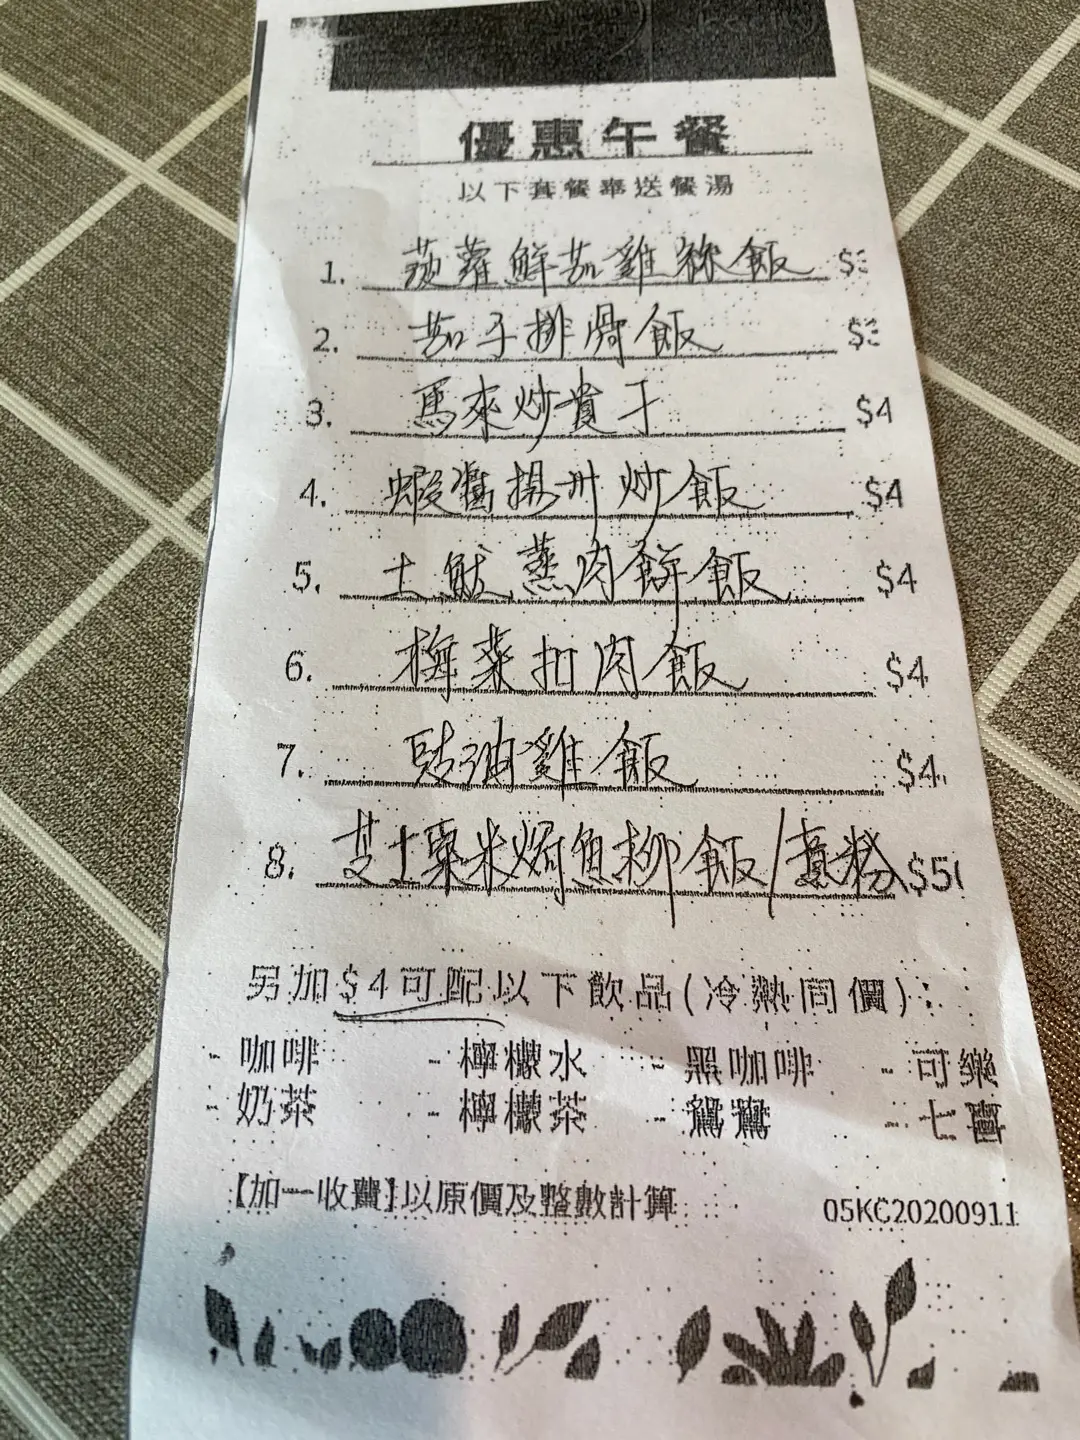 優惠午餐
以下套餐奉送餐湯
1. 菠蘿鮮茄雞絲飯 $3
2. 茄子排骨飯 $3
3. 馬來炒貴刁 $4
4. 蝦醬揚州炒飯 $4
5. 土魷蒸肉餅飯 $4
6. 梅菜扣肉飯 $4
7. 豉油雞飯 $4
8. 芝士粟米焗魚柳飯/意粉 $5
另加$4可配以下飲品(冷熱同價):
- 咖啡 - 檸檬水 - 黑咖啡 - 可樂
- 奶茶 - 檸檬茶 - 鴛鴦 - 七喜
【加一收費】以原價及整數計算 05KC20200911